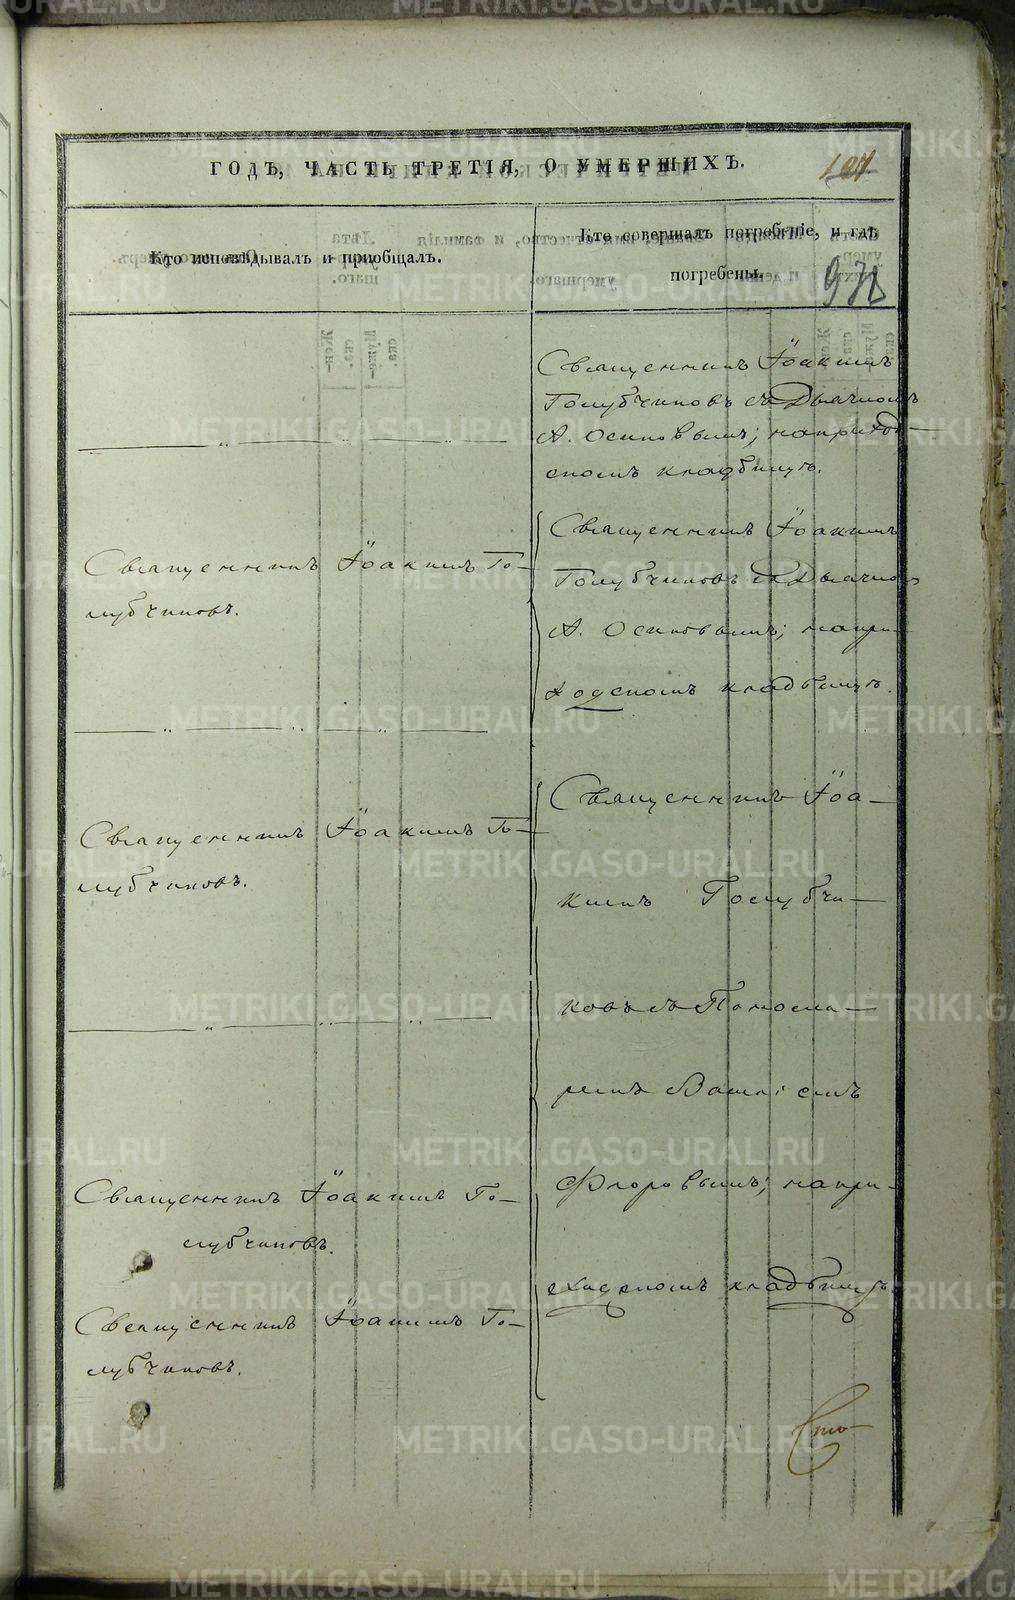 ГОДЪ, ЧАСТЬ ТРЕТІЯ, О УМЕРШИХЪ.
Кто исповѣдывалъ и пріобщалъ.
Кто совершалъ погребеніе, и гдѣ
погребены.
Священникъ Іоакимъ
Голубчиковъ съ Дьячкомъ
А. Осиповымъ; на приход-
скомъ кладбищѣ.
Священникъ Іоакимъ Го-
лубчиковъ.
Священникъ Іоакимъ
Голубчиковъ съ Дьячком
А. Осиповымъ; на при-
ходскомъ кладбищѣ.
Священникъ Іоакимъ Го-
лубчиковъ.
Священникъ Іоа-
кимъ Голубчи-
ковъ съ Понома-
ремъ Васи
Флоровымъ; на при-
ходскомъ кладбищѣ.
Священникъ Іоакимъ Го-
лубчиковъ.
Священникъ Іоакимъ Го-
лубчиковъ.
Сто
METRIKI.GASO-URAL.RU